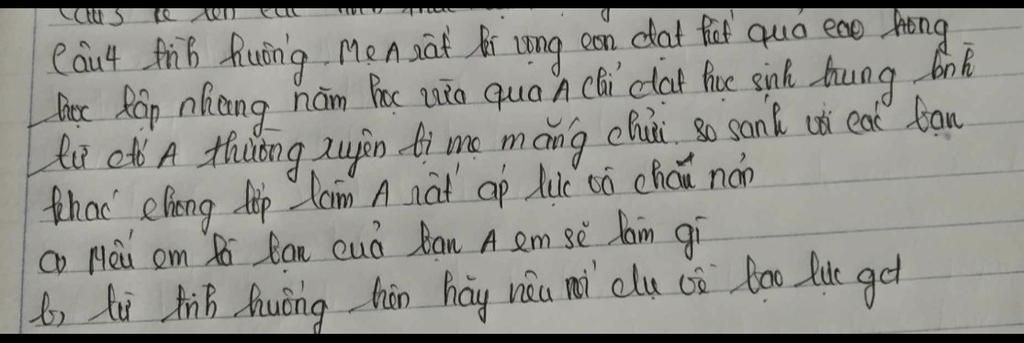 Câu 4 tình huống. Mẹ A rất kì vọng con đạt kết quả cao trong
học tập nhưng năm học vừa qua A chỉ đạt học sinh trung bình
từ đó A thường xuyên bị mẹ mắng chửi. so sánh với các bạn
khác trong lớp làm A rất áp lực và chán nản
a) Nếu em là bạn của bạn A em sẽ làm gì
b) từ tình huống trên hãy nêu ví dụ về bạo lực gđ